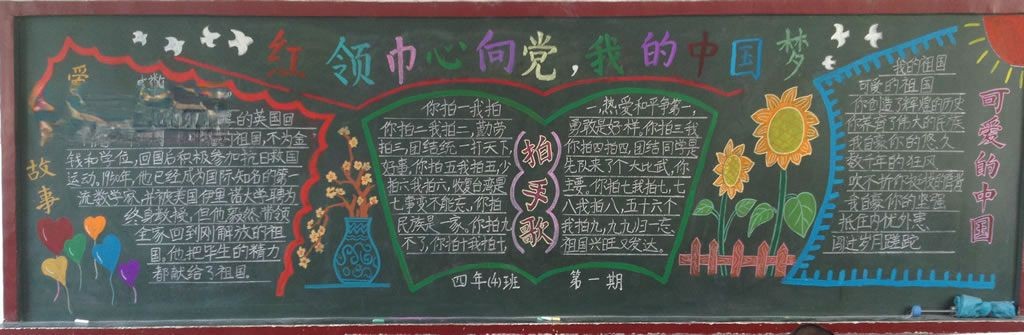 红领巾心向党,我的中国梦
爱
故事
的英国回
祖国,不为金
钱和学位,回国后积极参加抗日救国
运动。1950年,他已经成为国际知名的第一
流数学家,并被美国伊里诺大学聘为
终身教授,但他毅然带领
全家回到刚解放的祖
国,他把毕生的精力
都献给了祖国。
你拍一我拍
你拍二我拍二,勤劳
拍三,团结统一打天下
你拍五我拍五,少
拍六我拍六,收复台湾是
七事变不能忘,你拍
民族是一家,你拍九
不了,你拍十我拍十,
拍手歌
一,热爱和平争第一,
勇敢是好样,你拍三我
你拍四我拍四,团结同学是
先队来了个大比武,你
你拍七我拍七,七
八我拍八,五十六个
我拍九,九九归一忘
祖国兴旺又发达。
四年(4)班 第一期
我的祖国
可爱的祖国
你创造了辉煌的历史
你养育了伟大的民族
我自豪你的悠久
数千年的狂风
吹不折你挺拔的脊背
我自豪你的坚强
抵住内忧外患
闯过岁月蹉跎
可爱的中国